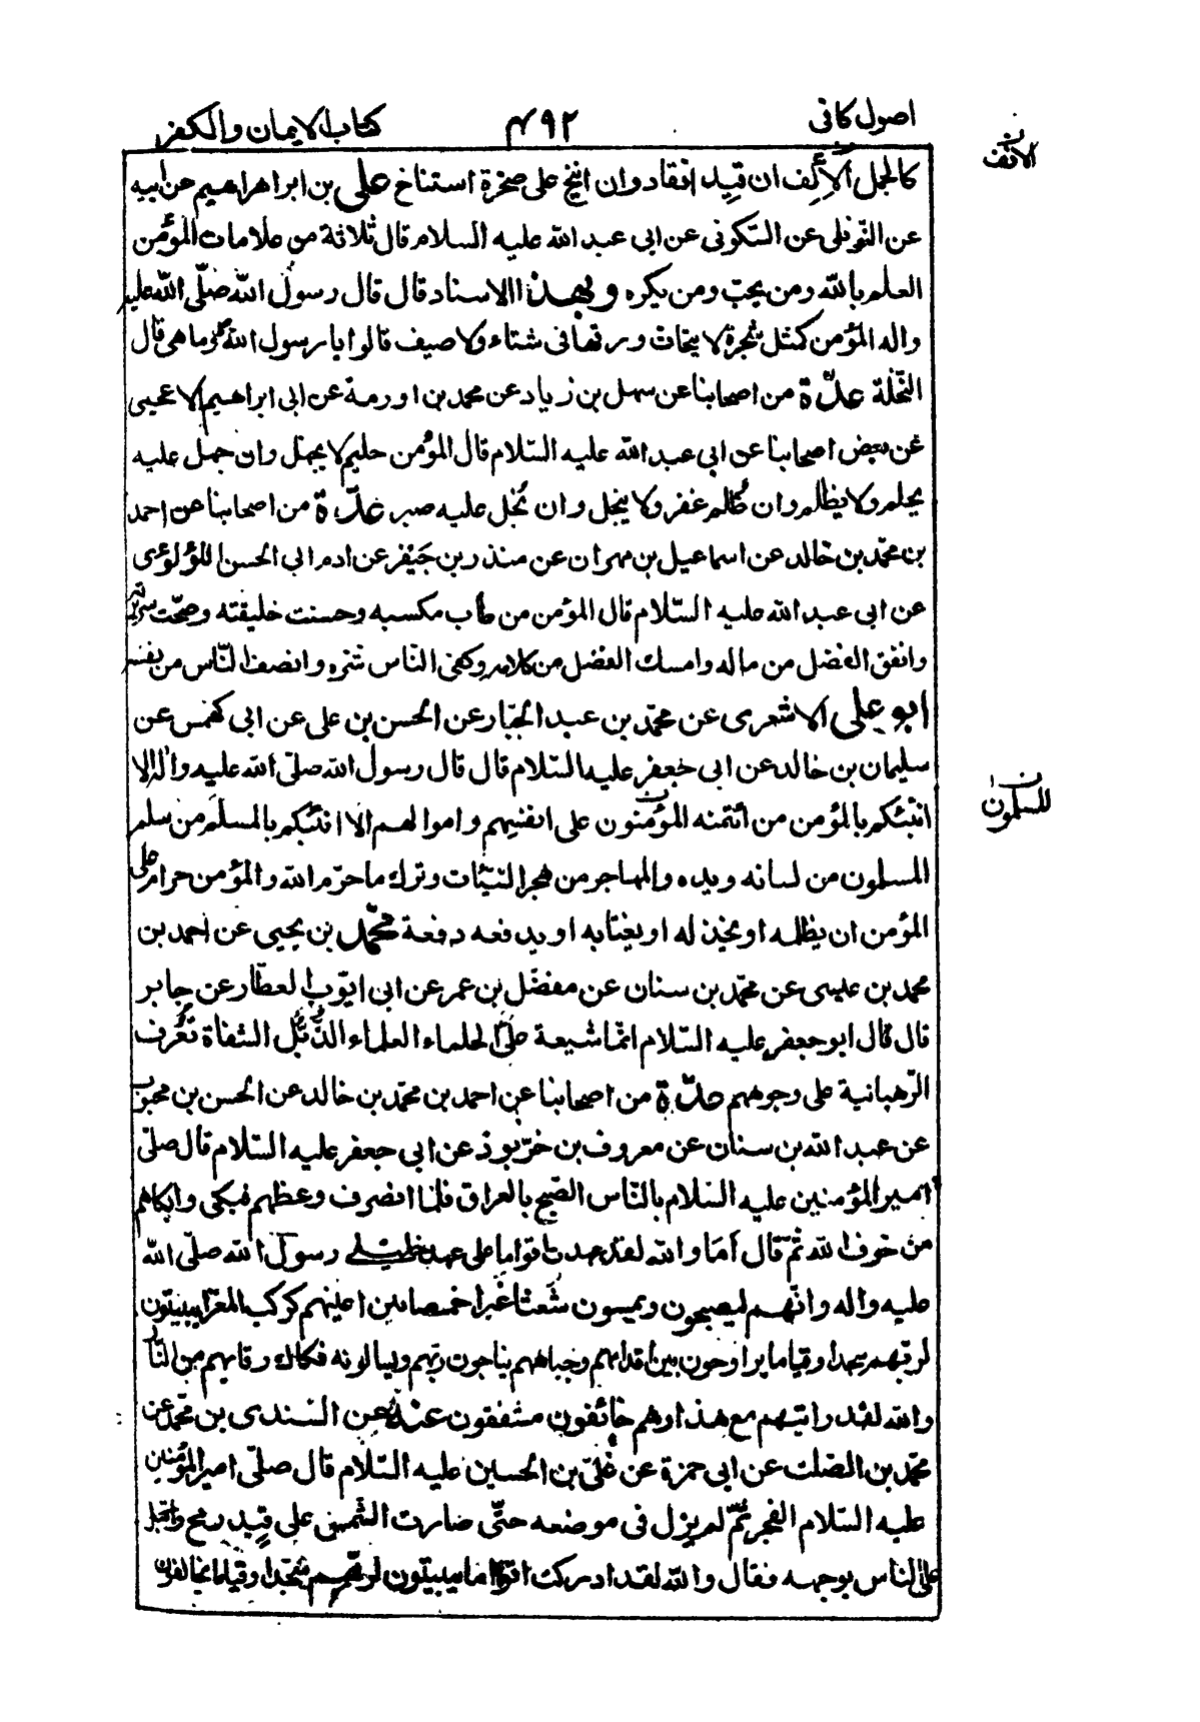 اصول كافى
۴۹۲
كتاب الايمان والكفر
الانف
كالجمل الألِف ان قِيد انقاد وان انيخ على صخرة استناخ على بن ابراهيم عن ابيه
عن النّوفلى عن السّكونى عن ابى عبد الله عليه السلام قال ثلاثة من علامات المؤمن
العلم بالله ومن يحبّ ومن يكره وبهذا الاسناد قال قال رسول الله صلّى الله عليه
واله المؤمن كمثل شجرة لا يتحات ورقها فى شتاء ولا صيف قالوا يا رسول الله وما هى قال
النّخلة عدّة من اصحابنا عن سهل بن زياد عن محمد بن اورمة عن ابى ابراهيم الاعجمى
عن بعض اصحابنا عن ابى عبد الله عليه السّلام قال المؤمن حليم لا يجهل وان جهل عليه
يحلم ولا يظلم وان ظُلم غفر ولا يبخل وان بُخل عليه صبر عدّة من اصحابنا عن احمد
بن محمّد بن خالد عن اسماعيل بن مهران عن منذر بن جَيفر عن ادم ابى الحسن اللؤلوءى
عن ابى عبد الله عليه السّلام قال المؤمن من طاب مكسبه وحسنت خليقته وصحّت سريرته
وانفق الفضل من ماله وامسك الفضل من كلامه وكفى النّاس شره وانصف النّاس من نفسه
ابو على الاشعرى عن محمّد بن عبد الجبّار عن الحسن بن على عن ابى كهمس عن
سليمان بن خالد عن ابى جعفر عليه السّلام قال قال رسول الله صلّى الله عليه واله الا
للمسلمون
انبّئكم بالمؤمن من ائتمنه المؤمنون على انفسهم واموالهم الا انبّئكم بالمسلم من سلم
المسلمون من لسانه ويده والمهاجر من هجر السّيّئات وترك ما حرّم الله والمؤمن حرام على
المؤمن ان يظلمه او يخذله او يغتابه او يدفعه دفعة محمّد بن يحيى عن احمد بن
محمد بن عيسى عن محمّد بن سنان عن مفضّل بن عمر عن ابى ايّوب العطّار عن جابر
قال قال ابو جعفر عليه السّلام انّما شيعة علىّ الحلماء العلماء الذُّبُل الشفاة تُعرف
الرّهبانية على وجوههم عدّة من اصحابنا عن احمد بن محمّد بن خالد عن الحسن بن محبوب
عن عبد الله بن سنان عن معروف بن خرّبوذ عن ابى جعفر عليه السّلام قال صلّى
امير المؤمنين عليه السّلام بالنّاس الصّبح بالعراق فلمّا انصرف وعظهم فبكى وابكاهم
من خوف الله ثمّ قال اَمَا والله لقد عهدت اقواما على عهد خليلى رسول الله صلّى الله
عليه واله وانّهم ليصبحون ويمسون شُعثا غُبرا خمصا بين اعينهم كركب المعزا يبيتون
لربّهم سجدا وقياما يراوحون بين اقدامهم وجباههم يناجون ربّهم ويسالونه فكاك رقابهم من النّار
والله لقد رايتهم مع هذا وهم خائفون مشفقون عنه عن السّندى بن محمّد عن
محمّد بن الصّلت عن ابى حمزة عن علىّ بن الحسين عليه السّلام قال صلّى امير المؤمنين
عليه السّلام الفجر ثمّ لم يزل فى موضعه حتّى صارت الشّمس على قِيد رمح واقبل
على النّاس بوجهه فقال والله لقد ادركت اقواما يبيتون لربّهم سُجّدا وقياما يخالفون